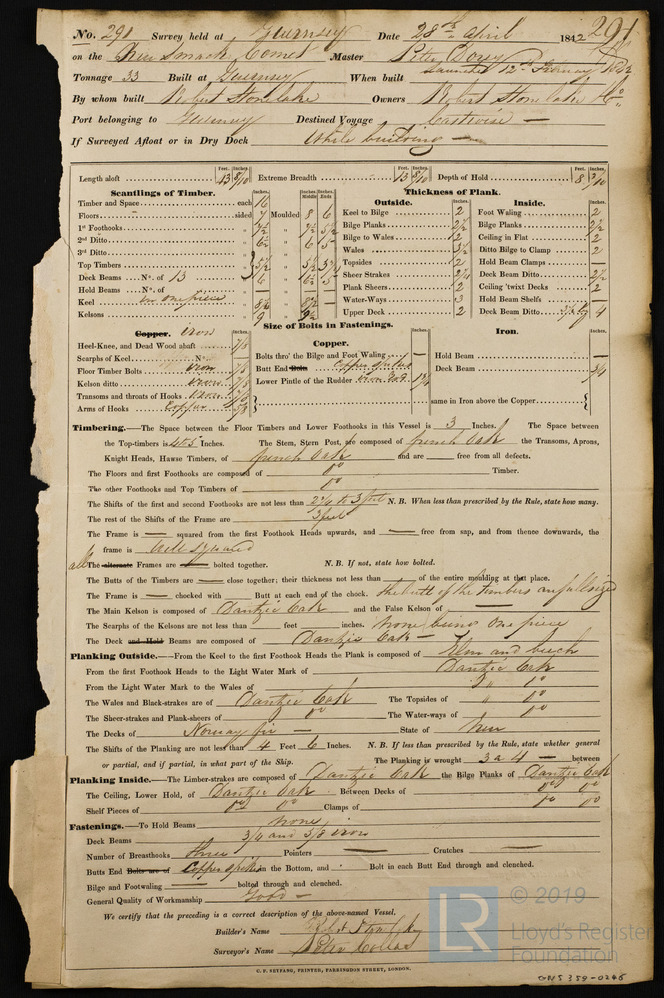 No. 291 Survey held at Guernsey Date 28th April 1842 291
on the New Smack Comet Master Peter Dorey
Tonnage 33 Built at Guernsey When built Launched 12th February 1842
By whom built Robert Stonelake Owners Robert Stonelake & Co
Port belonging to Guernsey Destined Voyage Coastwise
If Surveyed Afloat or in Dry Dock While building
Length aloft Feet. Inches. Extreme Breadth Feet. Inches. 13 8/10 Depth of Hold Feet. Inches. 8 3/10
Scantlings of Timber. Inches. Inches. Middle Inches. Ends
Thickness of Plank.
Outside. Inches. Inside. Inches.
Timber and Space each 16
Floors sided 7 Moulded 8 6
1st Foothooks " 7½ " 7½ 5½
2nd Ditto " 6½ " 6 5
3rd Ditto
Top Timbers 5½ 5½
Deck Beams No. of 13 " 6 " 6½ 5
Hold Beams No. of
Keel in one piece 8½ 8½
Kelsons 9 9½
Keel to Bilge 2
Bilge Planks 2½
Bilge to Wales 2
Wales 3½
Topsides 2
Sheer Strakes 2¼
Plank Sheers 2
Water-Ways 3
Upper Deck 2
Foot Waling 2
Bilge Planks 2½
Ceiling in Flat 2
Ditto Bilge to Clamp 2
Hold Beam Clamps —
Deck Beam Ditto 2½
Ceiling 'twixt Decks 2
Hold Beam Shelfs —
Deck Beam Ditto 4
Size of Bolts in Fastenings.
Copper. iron Inches. Copper. Inches. Iron. Inches.
Heel-Knee, and Dead Wood abaft 7/8
Scarphs of Keel No.
Floor Timber Bolts iron 7/8
Kelson ditto iron 7/8
Transoms and throats of Hooks iron
Arms of Hooks Copper 5/8
Bolts thro' the Bilge and Foot Waling —
Butt End Bolts Copper spikes
Lower Pintle of the Rudder iron
Hold Beam —
Deck Beam 3/4
same in Iron above the Copper
Timbering.—The Space between the Floor Timbers and Lower Foothooks in this Vessel is 3 Inches. The Space between
the Top-timbers is 4 to 5 Inches. The Stem, Stern Post, are composed of french Oak the Transoms, Aprons,
Knight Heads, Hawse Timbers, of french Oak and are — free from all defects.
The Floors and first Foothooks are composed of do Timber.
The other Foothooks and Top Timbers of do
The Shifts of the first and second Foothooks are not less than 2¾ to 3 feet N. B. When less than prescribed by the Rule, state how many.
The rest of the Shifts of the Frame are 3 feet
The Frame is — squared from the first Foothook Heads upwards, and — free from sap, and from thence downwards, the
frame is Well squared
all The alternate Frames are — bolted together. N. B. If not, state how bolted.
The Butts of the Timbers are — close together; their thickness not less than — of the entire moulding at that place.
The Frame is — chocked with — Butt at each end of the chock. the butt of the timbers are full sized
The Main Kelson is composed of Dantzic Oak and the False Kelson of —
The Scarphs of the Kelsons are not less than feet inches. None being one piece
The Deck and Hold Beams are composed of Dantzic Oak
Planking Outside.—From the Keel to the first Foothook Heads the Plank is composed of Elm and beech
From the first Foothook Heads to the Light Water Mark of Dantzic Oak
From the Light Water Mark to the Wales of do
The Wales and Black-strakes are of Dantzic Oak The Topsides of " do
The Sheer-strakes and Plank-sheers of do The Water-ways of do
The Decks of Norway fir — State of New
The Shifts of the Planking are not less than 4 Feet 6 Inches. N. B. If less than prescribed by the Rule, state whether general
or partial, and if partial, in what part of the Ship. The Planking is wrought 3 a 4 — between
Planking Inside.—The Limber-strakes are composed of Dantzic Oak the Bilge Planks of Dantzic Oak
The Ceiling, Lower Hold, of Dantzic Oak Between Decks of do do
Shelf Pieces of do do Clamps of do do
Fastenings.—To Hold Beams None
Deck Beams 3/4 and 5/8 iron
Number of Breasthooks three Pointers — Crutches —
Butts End Bolts are of Copper spikes in the Bottom, and Bolt in each Butt End through and clenched.
Bilge and Footwaling — bolted through and clenched.
General Quality of Workmanship Good —
We certify that the preceding is a correct description of the above-named Vessel.
Builder's Name Robt Stonelake
Surveyor's Name Peter Collas
C. F. SEYFANG, PRINTED, FARRINGDON STREET, LONDON.
© 2019
LR Lloyd's Register
Foundation
GNS359-0246